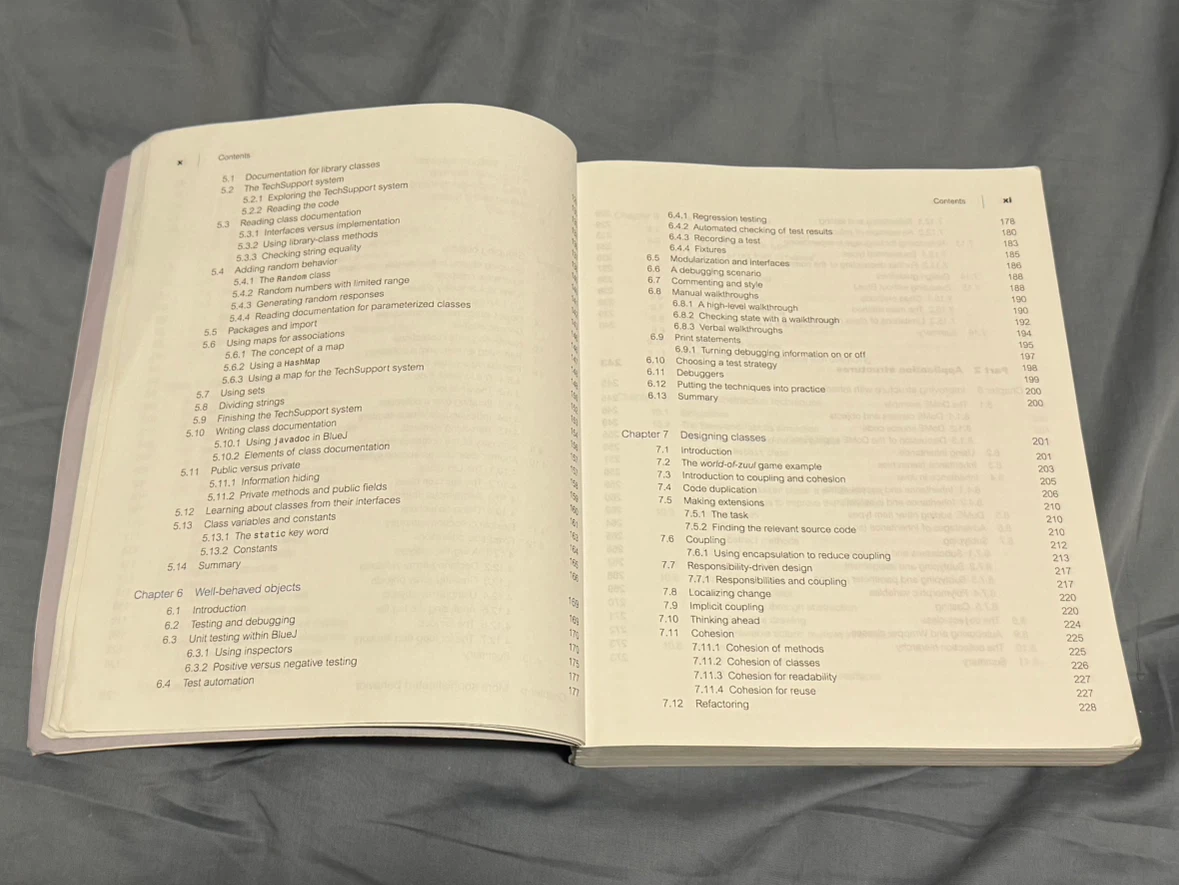 x | Contents
5.1 Documentation for library classes
5.2 The TechSupport system
5.2.1 Exploring the TechSupport system
5.2.2 Reading the code
5.3 Reading class documentation
5.3.1 Interfaces versus implementation
5.3.2 Using library-class methods
5.3.3 Checking string equality
5.4 Adding random behavior
5.4.1 The Random class
5.4.2 Random numbers with limited range
5.4.3 Generating random responses
5.4.4 Reading documentation for parameterized classes
5.5 Packages and import
5.6 Using maps for associations
5.6.1 The concept of a map
5.6.2 Using a HashMap
5.6.3 Using a map for the TechSupport system
5.7 Using sets
5.8 Dividing strings
5.9 Finishing the TechSupport system
5.10 Writing class documentation
5.10.1 Using javadoc in BlueJ
5.10.2 Elements of class documentation
5.11 Public versus private
5.11.1 Information hiding
5.11.2 Private methods and public fields
5.12 Learning about classes from their interfaces
5.13 Class variables and constants
5.13.1 The static key word
5.13.2 Constants
5.14 Summary 166
Chapter 6 Well-behaved objects 169
6.1 Introduction 169
6.2 Testing and debugging 170
6.3 Unit testing within BlueJ 170
6.3.1 Using inspectors 175
6.3.2 Positive versus negative testing 177
6.4 Test automation 177
Contents | xi
6.4.1 Regression testing 178
6.4.2 Automated checking of test results 180
6.4.3 Recording a test 183
6.4.4 Fixtures 185
6.5 Modularization and interfaces 186
6.6 A debugging scenario 188
6.7 Commenting and style 188
6.8 Manual walkthroughs 190
6.8.1 A high-level walkthrough 190
6.8.2 Checking state with a walkthrough 192
6.8.3 Verbal walkthroughs 194
6.9 Print statements 195
6.9.1 Turning debugging information on or off 197
6.10 Choosing a test strategy 198
6.11 Debuggers 199
6.12 Putting the techniques into practice 200
6.13 Summary 200
Chapter 7 Designing classes 201
7.1 Introduction 201
7.2 The world-of-zuul game example 203
7.3 Introduction to coupling and cohesion 205
7.4 Code duplication 206
7.5 Making extensions 210
7.5.1 The task 210
7.5.2 Finding the relevant source code 210
7.6 Coupling 212
7.6.1 Using encapsulation to reduce coupling 213
7.7 Responsibility-driven design 217
7.7.1 Responsibilities and coupling 217
7.8 Localizing change 220
7.9 Implicit coupling 220
7.10 Thinking ahead 224
7.11 Cohesion 225
7.11.1 Cohesion of methods 225
7.11.2 Cohesion of classes 226
7.11.3 Cohesion for readability 227
7.11.4 Cohesion for reuse 227
7.12 Refactoring 228